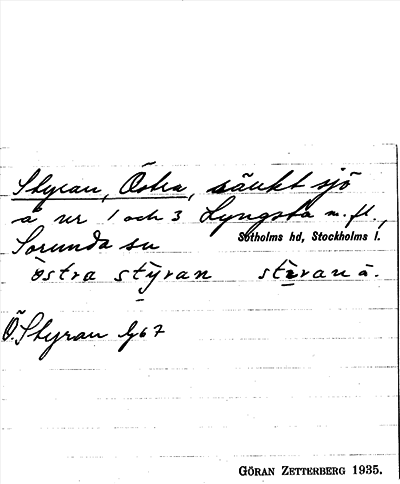 Styran, Östra, sänkt sjö
å nr 1 och 3 Lyngsta m. fl.,
Sorunda sn Sotholms hd, Stockholms l.
östra stỳran stìranå.
Ö. Styran lg 67
GÖRAN ZETTERBERG 1935.